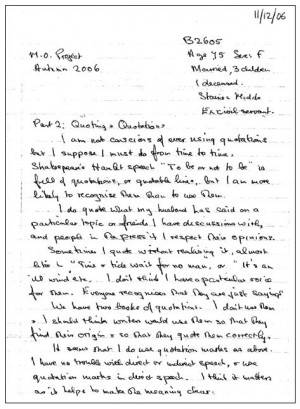 11/12/06
B2605
M.O. Project Age 75 Sex: F
Autumn 2006 Married, 3 children
1 deceased
Staines Middx
Ex civil servant.
Part 2: Quoting & Quotations
I am not conscious of ever using quotations
but I suppose I must do from time to time.
Shakespeare's Hamlet speech "To be or not to be" is
full of quotations, or quotable lines, but I am more
likely to recognise them than to use them.
I do quote what my husband has said on a
particular topic or friends I have discussions with,
and people in the press if I respect their opinions.
Sometimes I quote without realising it, almost
like "Time & tide wait for no man", or "It's an
ill wind etc. I don't think I have a particular voice
for them. Everyone recognises that they are just sayings
We have two books of quotations. I don't use them
& I should think writers would use them so that they
find their origin & so that they quote them correctly.
It seems that I do use quotation marks as above.
I have no trouble with direct or indirect speech, & use
quotation marks in direct speech. I think it matters
as it helps to make the meaning clear.